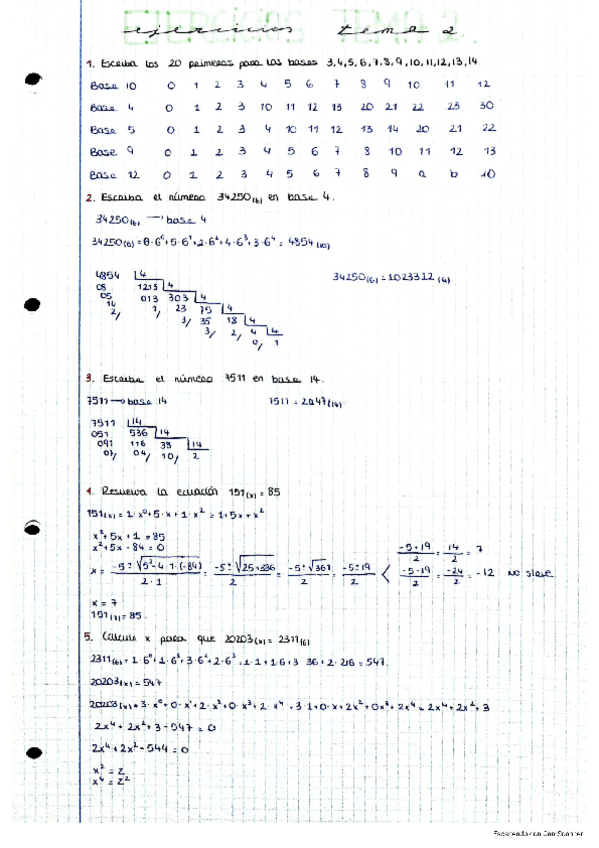 ejercicios tema 2
1. Escriba los 20 primeros para las bases 3,4,5,6,7,8,9,10,11,12,13,14.
Base 10 0 1 2 3 4 5 6 7 8 9 10 11 12
Base 4 0 1 2 3 10 11 12 13 20 21 22 23 30
Base 5 0 1 2 3 4 10 11 12 13 14 20 21 22
Base 9 0 1 2 3 4 5 6 7 8 10 11 12 13
Base 12 0 1 2 3 4 5 6 7 8 9 a b 10
2. Escriba el número 34250(6) en base 4.
34250(6) → base 4
34250(6) = 0·6⁰+5·6¹+2·6²+4·6³+3·6⁴ = 4854(10)
4854 4
08 1213 4
05 013 303 4
14 1/ 23 75 4
2/ 3/ 35 18 4
3/ 2/ 4 4
0/ 1
34250(6) = 1023312(4)
3. Escriba el número 7511 en base 14.
7511 → base 14 7511 = 2a47(14)
7511 14
051 536 14
091 116 38 14
07/ 04/ 10/ 2
4. Resuelva la ecuación 151(x) = 85
151(x) = 1·x⁰+5·x+1·x² = 1+5x+x²
x²+5x+1 = 85
x²+5x-84 = 0
x = -5±√5²-4·1·(-84) / 2·1 = -5±√25+336 / 2 = -5±√361 / 2 = -5±19 / 2
-5+19 / 2 = 14 / 2 = 7
-5-19 / 2 = -24 / 2 = -12 no sirve
x = 7
151(7) = 85.
5. Calcula x para que 20203(x) = 2311(6)
2311(6) = 1·6⁰+1·6¹+3·6²+2·6³ = 1·1+1·6+3·36+2·216 = 547.
20203(x) = 547
20203(x) = 3·x⁰+0·x¹+2·x²+0·x³+2·x⁴ = 3·1+0·x+2x²+0x³+2x⁴ = 2x⁴+2x²+3
2x⁴+2x²+3-547 = 0
2x⁴+2x²-544 = 0
x² = z
x⁴ = z²
Escaneado con CamScanner